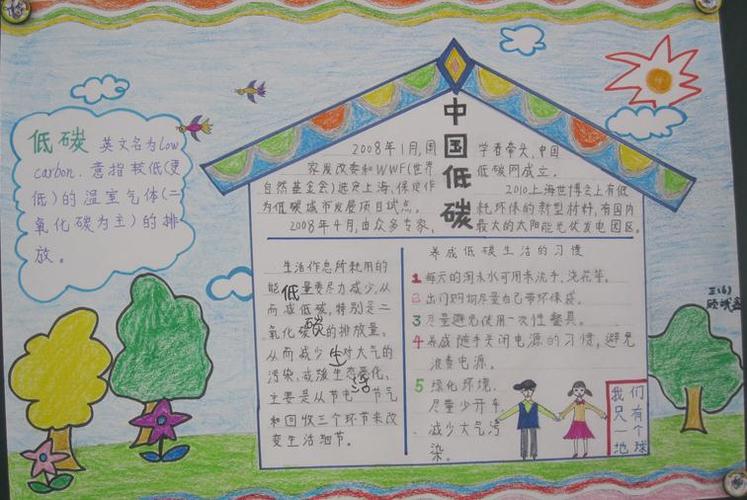 低碳 英文名为low
carbon. 意指较低(更
低)的温室气体(二
氧化碳为主)的排
放。
中国低碳
2008年1月,国
家发改委和WWF(世界
自然基金会)选定上海、保定作
为低碳城市发展项目试点。
2008年4月,由众多专家、
学者牵头,中国
低碳网成立。
2010上海世博会上有低
耗环保的新型材料,有国内
最大的太阳能光伏发电园区。
低碳生活
生活作息所耗用的
能量要尽力减少,从
而减低碳,特别是二
氧化碳的排放量,
从而减少对大气的
污染,减缓生态恶化,
主要是从节电 节气
和回收三个环节来改
变生活细节。
养成低碳生活的习惯
1 每天的淘米水可用来洗手、浇花等。
2 出门购物尽量自己带环保袋。
3 尽量避免使用一次性餐具。
4 养成随手关闭电源的习惯,避免
浪费电源。
5 绿化环境.
尽量少开车
.减少大气污
染。
我们
只有
一个
地球
三(6)